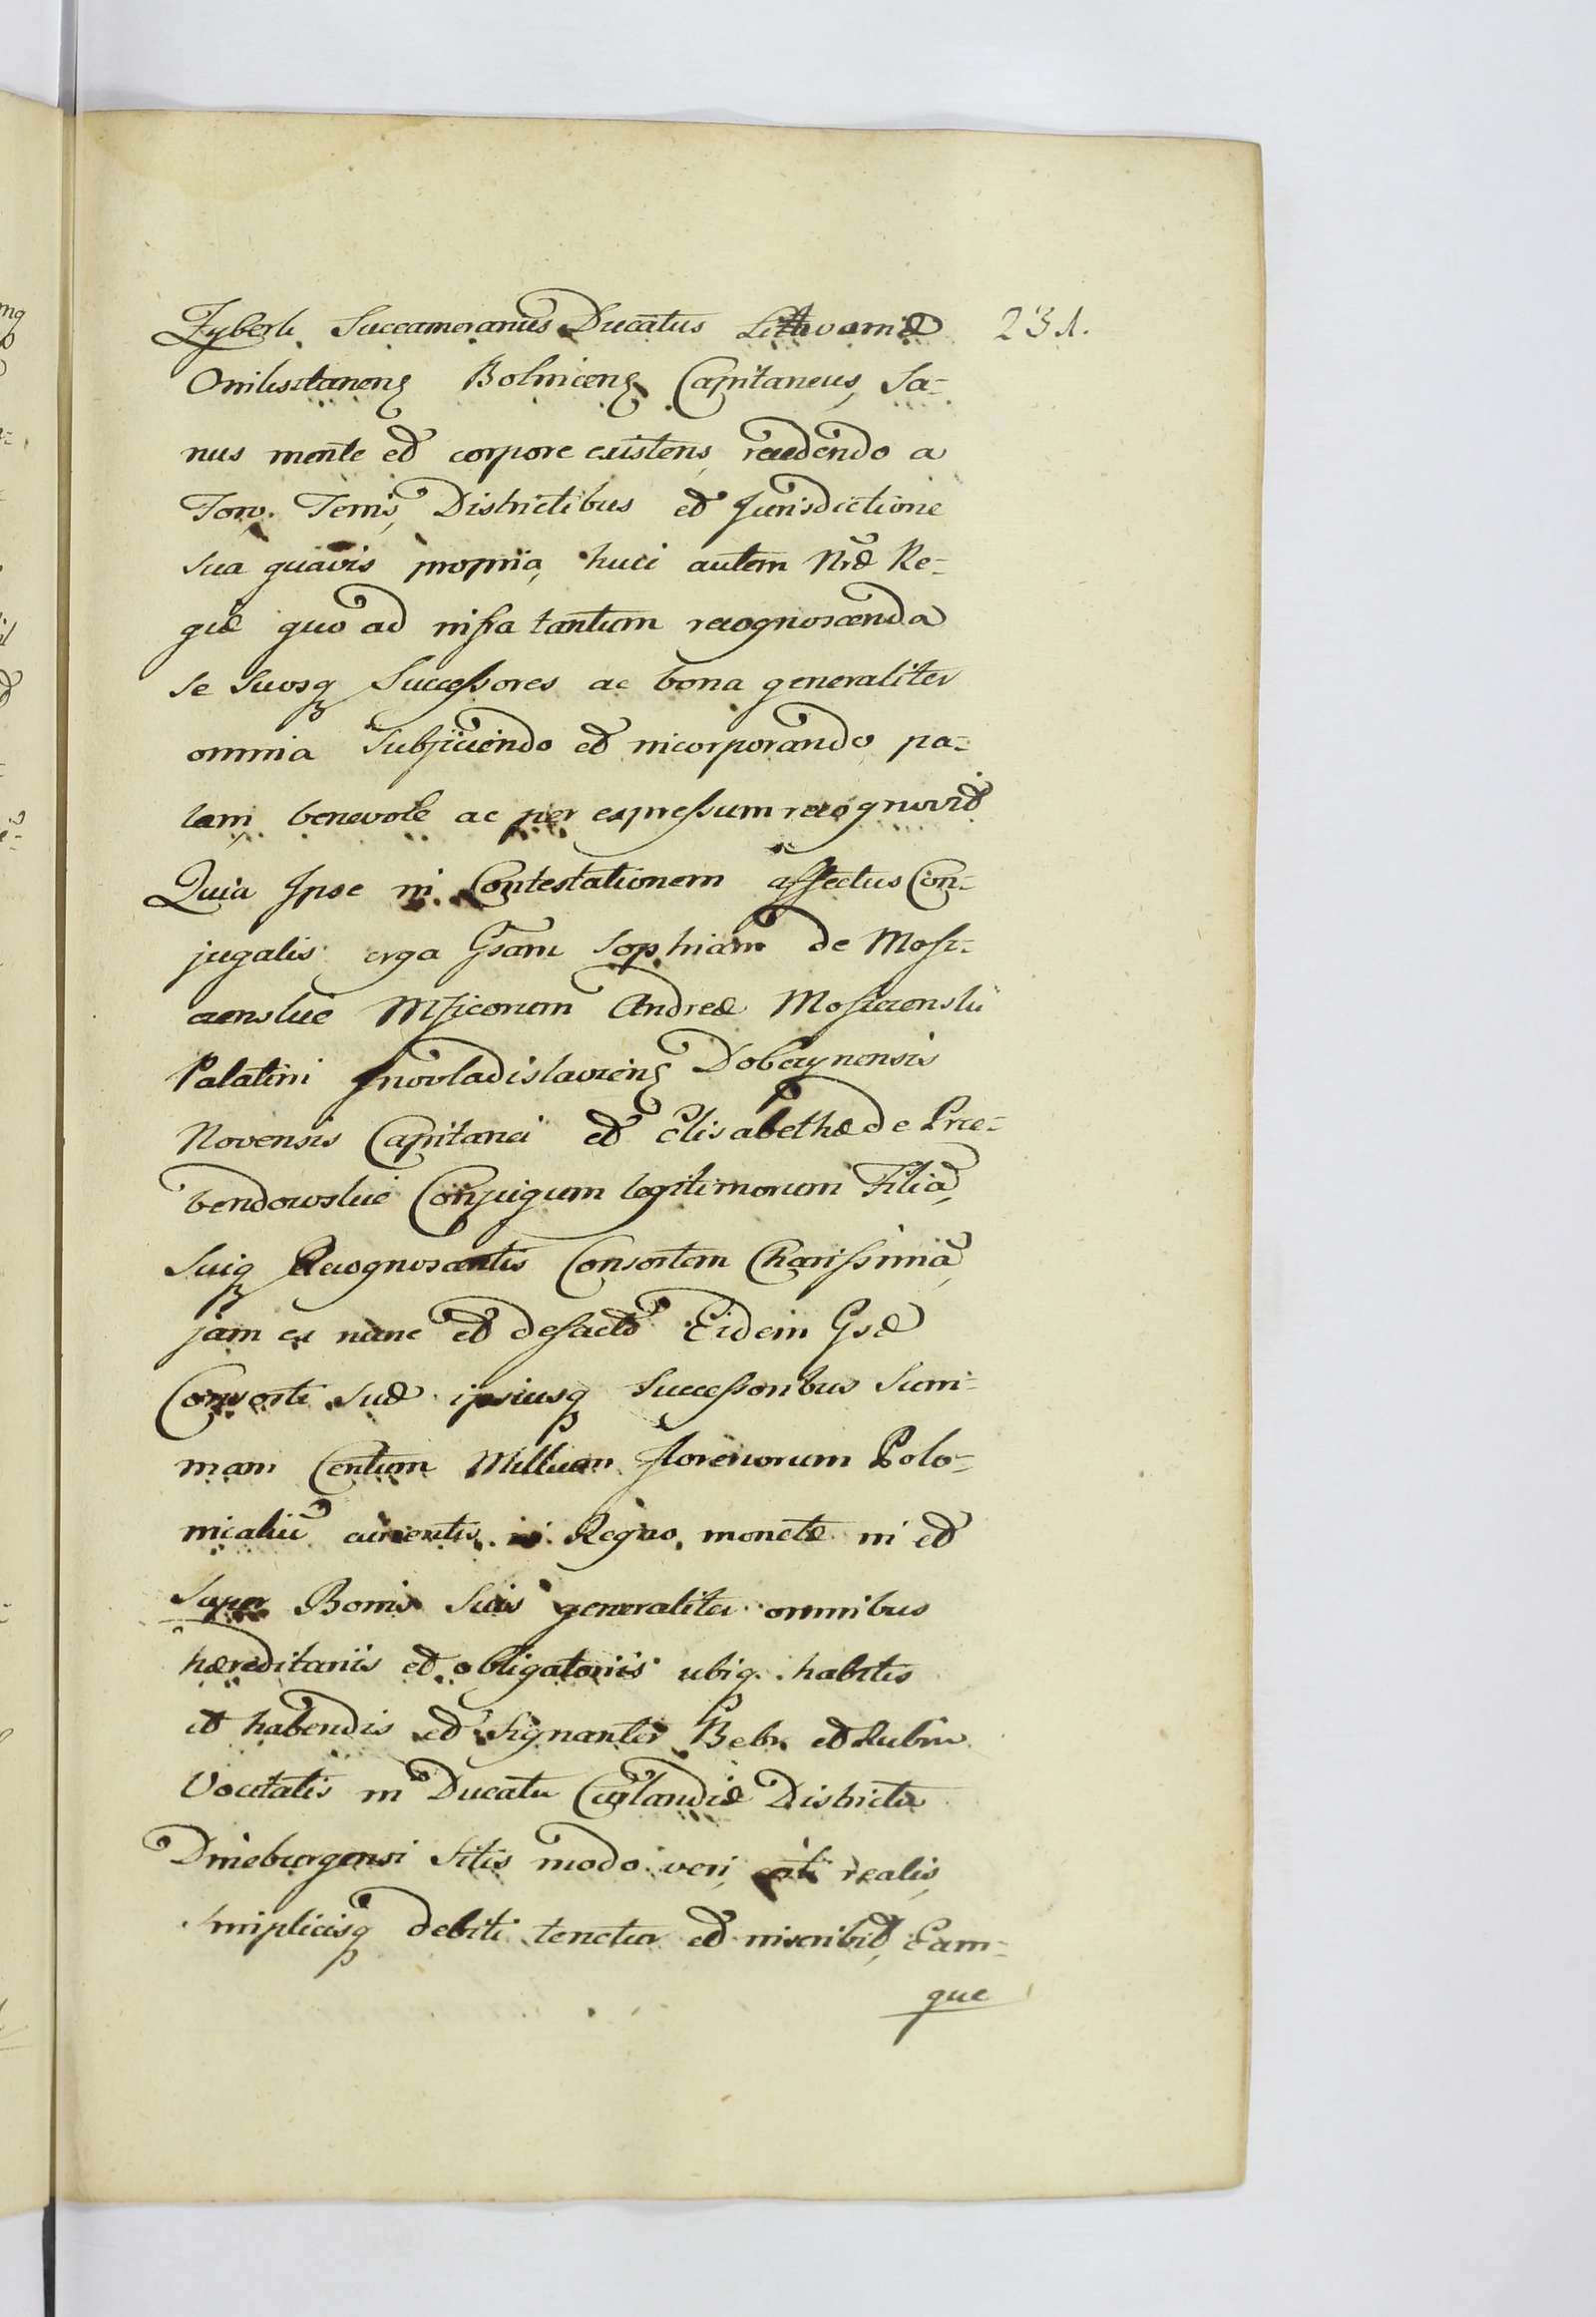 Zyberk Succamerarius Ducatus Lithvaniæ 231.
Bolnicens Capitaneus, Sa-
nus mente et corpore existens, recedendo a
Foro. Terris, Districtibus et Jurisdictione
sua quavis propria, huic autem Nræ Re-
giæ quo ad infra tantum recognoscenda
se suosq Successores ac bona generaliter
omnia subjiciendo et incorporando, pa-
lam, benevole ac per expressum recognovit.
Quia Ipse in Contestationem affectus Con-
jugalis erga Gsam Sophiam de Mosz-
czenskie Mficorum Andreæ Moszczenski
Palatini Inowladislaviens Dobrzynensis
Novensis Capitanei et Elisabethæ de Prze-
bendowskie Conjugum legitimorum Filiã,
Suiq Recognoscentis Consortem Charissimã,
jam ex nunc et defacto Eidem Gsæ
Consorti suæ ipsiusq Successoribus Sum-
mam Centum Millium florenorum Polo-
nicaliũ currentis in Regno monetæ in et
super Bonis Suis generaliter omnibus
hæreditariis et obligatoriis ubiq. habitis
et habendis et signanter Bebr. et Rubin
Vocitatis in Ducatu Curlandiæ Districtu
Dineburgensi sitis modo veri, certi realis,
simplicisq debiti tenetur et inscribit, Eam-
que